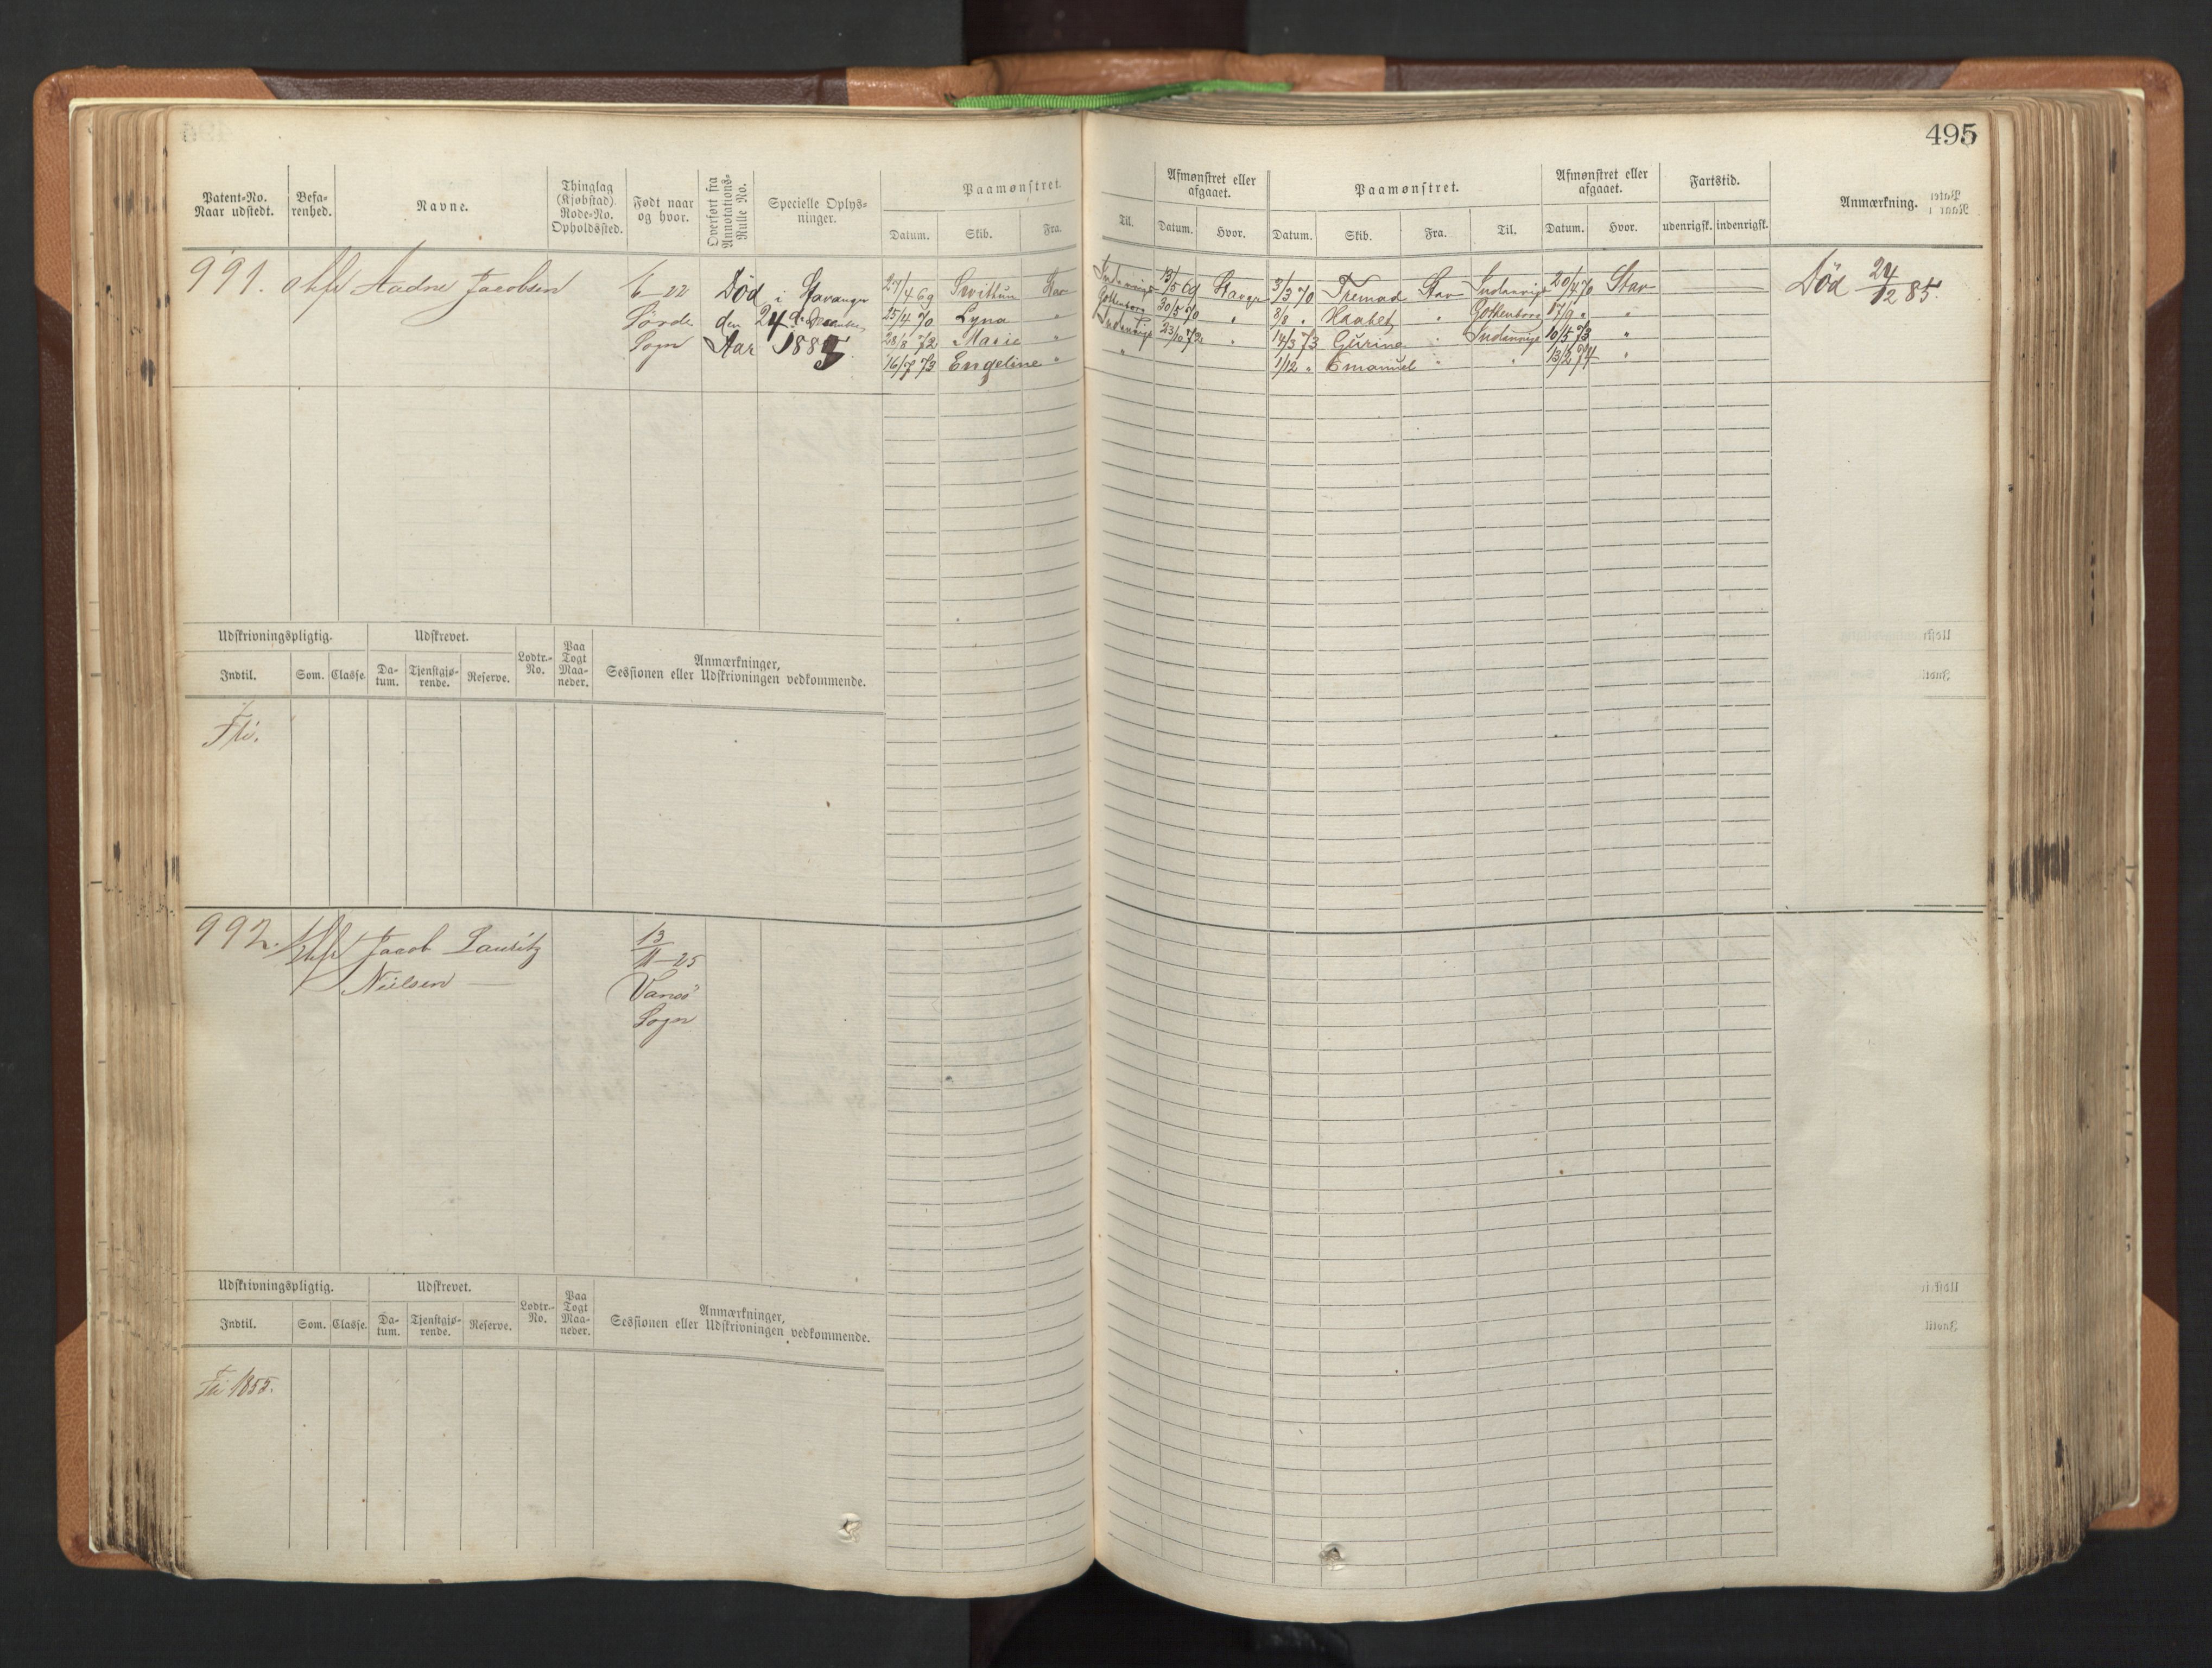 495
Patent-No.
Naar udstedt.
Befa-
renhed.
Navne.
Thinglag
(Kjøbstad)
Rode-No.
Opholdssted.
Født naar
og hvor.
Overført fra
Annotations-
Rulle No.
Specielle Oplys-
ninger.
Paamønstret.
Datum. Skib. Fra.
Til.
Afmønstret eller
afgaaet.
Datum. Hvor.
Paamønstret.
Datum. Skib. Fra. Til.
Afmønstret eller
afgaaet.
Datum. Hvor.
Fartstid.
udenrigsk. indenrigsk.
Anmærkning.
991. Aadne Jacobsen
Sogn
Død i Stavanger
den 24de December
Aar 1885
27/4 69 Swithun Stav Indenrigs 13/5 69 Stavgr 3/3 70 Fremad Stav Indenrigs 20/4 70 Stav
25/4 70 Lyna " Gothenborg 30/5 70 " 8/8 " Haabet " Gothenborg 17/9 " "
28/8 72 Marie " Indenrigs 23/10 72 " 14/3 73 Gurine " Indenrigs 10/5 73 "
16/7 73 Engeline " " 1/12 " Emanuel " " 13/2 74 "
Død 24/12 85.
Udskrivningspligtig.
Indtil. Som. Classe.
Udskrevet.
Da-
tum.
Tjenstgjø-
rende.
Reserve.
Lodtr.-
No.
Paa
Togt
Maa-
neder.
Anmærkninger,
Sessionen eller Udskrivningen vedkommende.
992. Jacob Lauritz
Nielsen
13/11-25
Sogn
Udskrivningspligtig.
Indtil. Som. Classe.
Udskrevet.
Da-
tum.
Tjenstgjø-
rende.
Reserve.
Lodtr.-
No.
Paa
Togt
Maa-
neder.
Anmærkninger,
Sessionen eller Udskrivningen vedkommende.
1855.